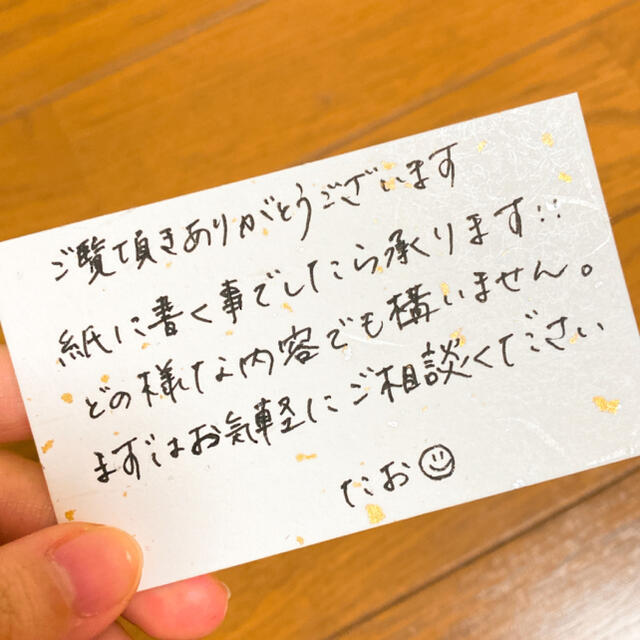 ご覧頂きありがとうございます
紙に書く事でしたら承ります!!
どの様な内容でも構いません。
まずはお気軽にご相談ください
たお☺